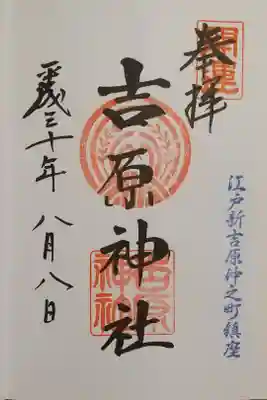 開運
奉拝
江戸新吉原仲之町鎮座
吉原神社
吉原神社
平成三十年 八月八日